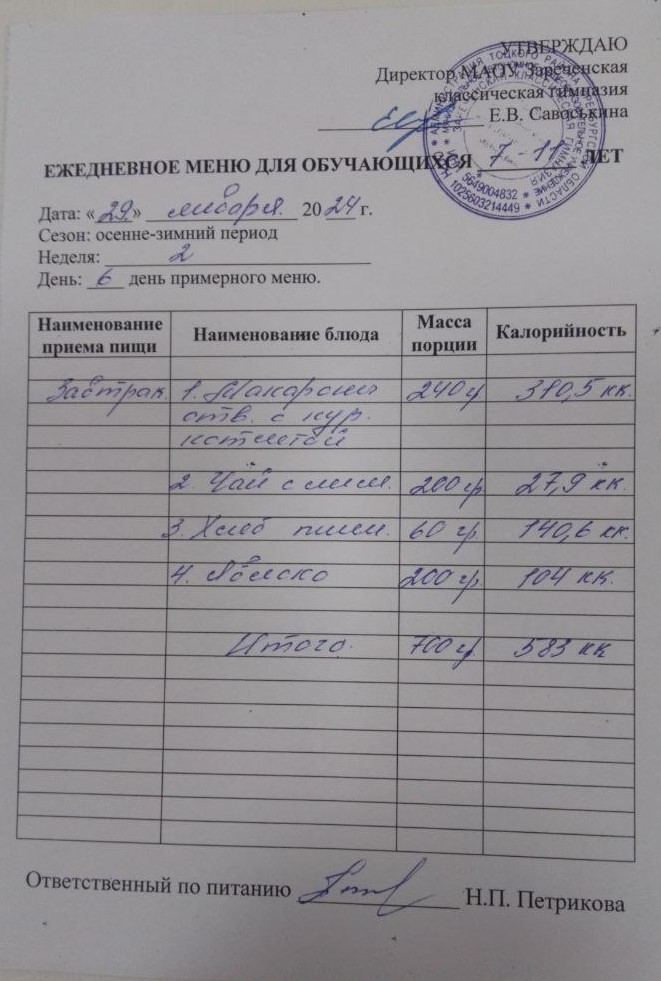 УТВЕРЖДАЮ
Директор МАОУ Зареченская
классическая гимназия
Е.В. Савоськина
ЕЖЕДНЕВНОЕ МЕНЮ ДЛЯ ОБУЧАЮЩИХСЯ 7-11 ЛЕТ
Дата: «29» января 2024 г.
Сезон: осенне-зимний период
Неделя: 2
День: 6 день примерного меню.
Наименование приема пищи Наименование блюда Масса порции Калорийность
Завтрак. 1. Макароны 240 гр 310,5 кк.
отв. с кур.
котлетой
2. Чай с лим. 200 гр 27,9 кк.
3. Хлеб пшен. 60 гр. 140,6 кк.
4. Яблоко 200 гр 104 кк.
Итого. 700 гр 583 кк
Ответственный по питанию Н.П. Петрикова
5649004832
1025603214449